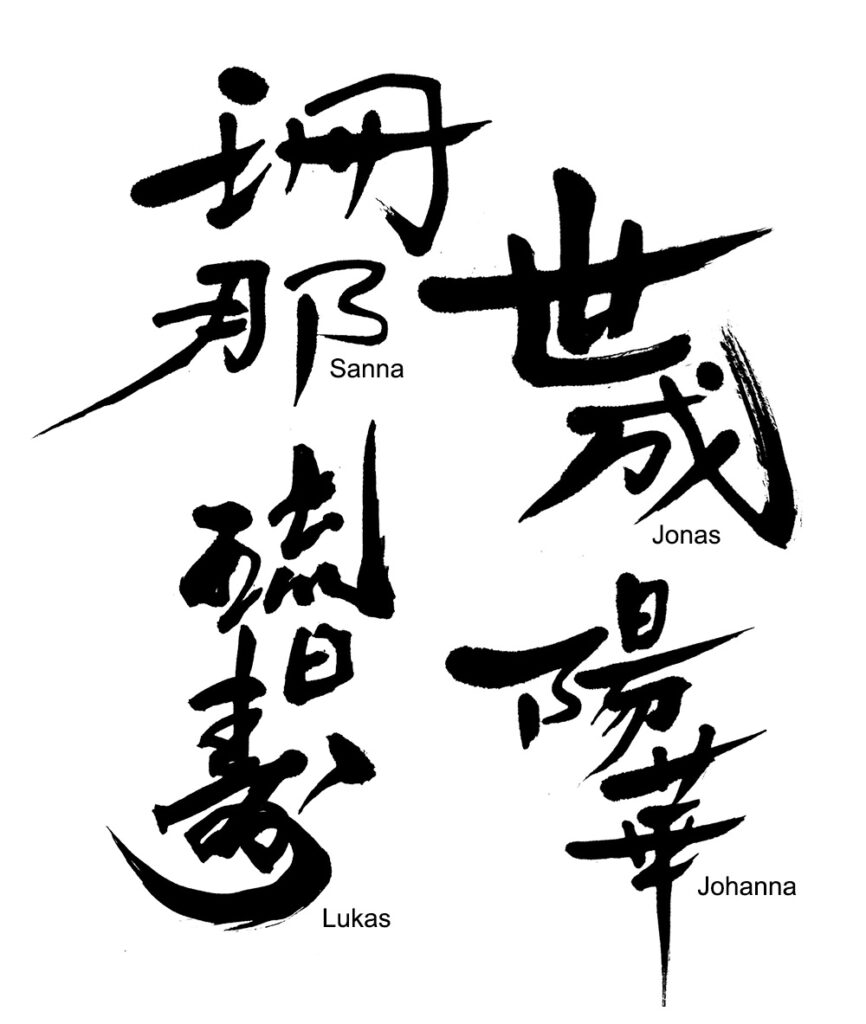 珊
那
Sanna
世
成
Jonas
琉
日
壽
Lukas
陽
華
Johanna